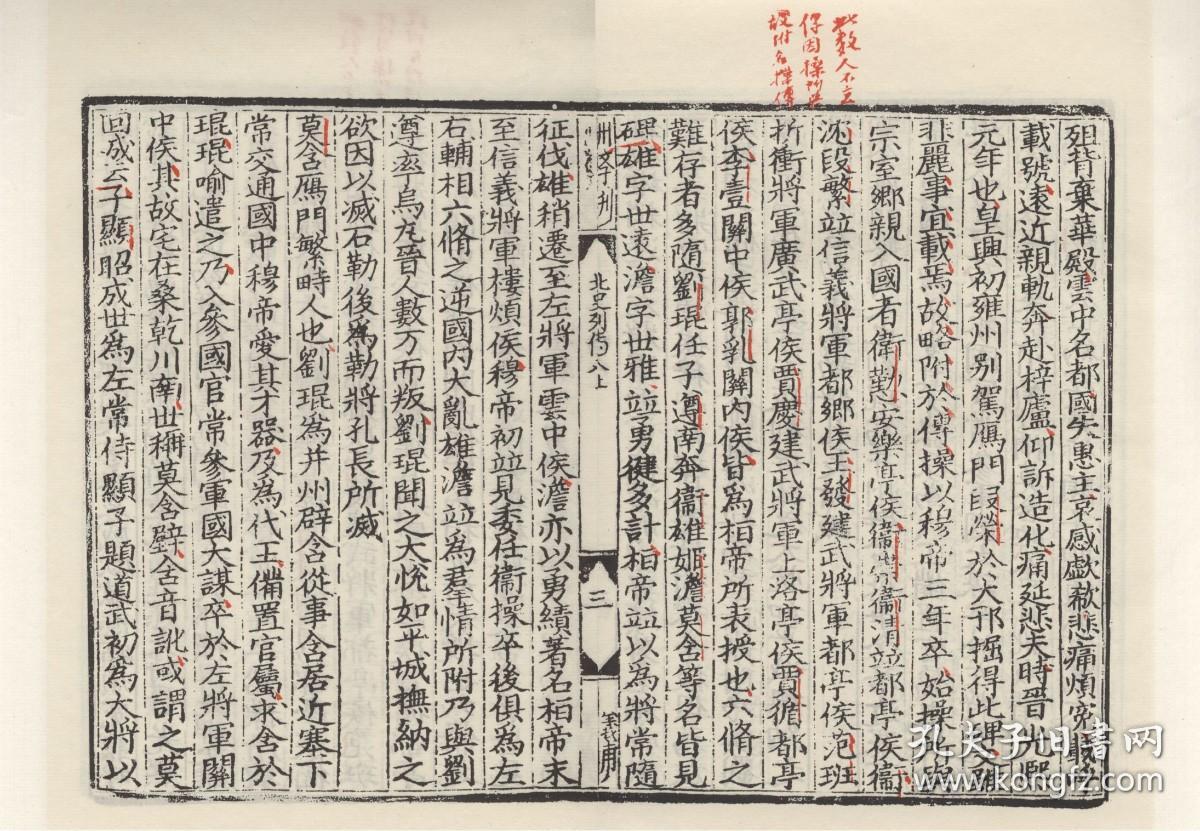 此数人不立
傳因操所與
故附名操傳
殂背棄華殿雲中名都國失惠主哀感歔欷悲痛煩寃載呼
載號遠近親軌奔赴梓廬仰訴造化痛延悲夫時晉光熙
元年也皇興初雍州别駕鴈門段榮於大邗掘得此碑文雖
非麗事宜載焉故略附於傳操以穆帝三年卒始操所與
宗室鄉親入國者衛勤安樂亭侯衛崇衛清竝都亭侯衛
沈段繁竝信義將軍都鄉侯王發建武將軍都亭侯范班
折衝將軍廣武亭侯賈慶建武將軍上洛亭侯賈循都亭
侯李壹關中侯郭乳關内侯皆為桓帝所表授也六脩之
難存者多隨劉琨任子遵南奔衛雄姬澹莫含等名皆見
碑雄字世遠澹字世雅竝勇健多計桓帝竝以為將常隨
北史列传八上
三
征伐雄稍遷至左將軍雲中侯澹亦以勇績著名桓帝末
至信義將軍樓煩侯穆帝初竝見委任衛操卒後俱為左
右輔相六脩之逆國内大亂雄澹竝為羣情所附乃與劉
遵率烏丸晉人數万而叛劉琨聞之大悦如平城撫納之
欲因以滅石勒後為勒將孔長所滅
莫含鴈門繁畤人也劉琨爲并州辟含從事含居近塞下
常交通國中穆帝愛其才器及為代王備置官屬求含於
琨琨喻遣之乃入參國官常參軍國大謀卒於左將軍關
中侯其故宅在桑乾川南世稱莫含壁含音訛或謂之莫
回城云子顯昭成世爲左常侍顯子題道武初爲大將以
孔夫子旧書网
www.kongfz.com